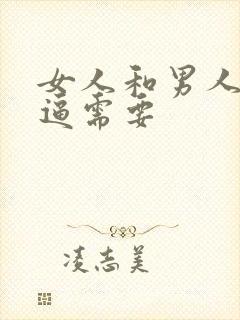 女人和男人
逼需要
凌志美